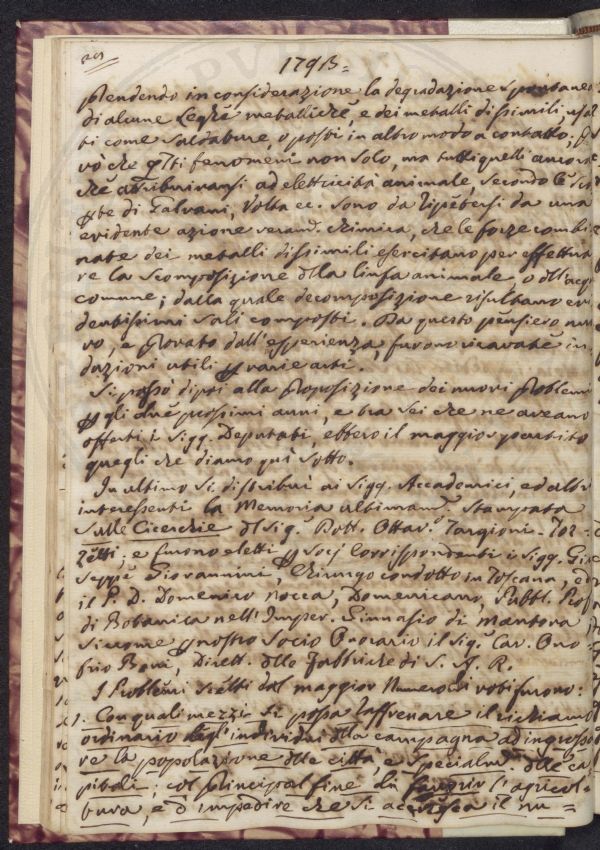 1793=
prendendo in considerazione la degradazione spontanea
di alcune Leghe metalliche, e dei metalli dissimili, usa
ti come saldature, o posti in altro modo a contatto,
vò che qsti fenomeni non solo, ma tutti quelli ancora
che attribuivansi ad elettricità animale, secondo le Sco
pte di Galvani, Volta ec. sono da ripetersi da una
evidente azione veram. chimica, che le forze combi
nate dei metalli dissimili esercitano per effettua
re la scomposizione dlla linfa animale o dll'acqa
comune; dalla quale decomposizione risultano evi
dentissimi sali composti. Da questo pensiero nuo
vo, e provato dall'esperienza, furono ricavate in
dazioni utili p varie arti.
Si passò dipoi alla Proposizione dei nuovi Problemi
p gli due prossimi anni, e tra sei che ne aveano
offerti i Sigg. Deputati, ebbero il maggior partito
quegli che diamo quì sotto.
In ultimo si distribuì ai Sigg. Accademici, ed altri
interessenti la Memoria ultimam. stampata
sulle Cicerchie dl Sig. Dott. Ottav. Targioni-Toz=
zetti, e furono eletti p Socj Corrispondenti i Sigg. Giu
seppe Giovannini, Chirurgo condotto in Toscana, ed
il P. D. Domenico Nocca, Domenicano, Pubbl. Prof
di Botanica nell'Imper. Ginnasio di Mantova,
siccome p nostro Socio Onorario il Sig. Cav. Ono
frio Boni, Dirett. dlle Fabbriche di S. A. R.
I Problemi scelti dal maggior Numero di voti furono:
1. Con quali mezzi si possa raffrenare il richiamo
ordinario degl'individui dlla campagna ad ingrossa
re la popolazione dlle città, e specialm. dlle ca
pitali; col principal fine di favorir l'agricol=
tura, e d'impedire che si accresca il nu=